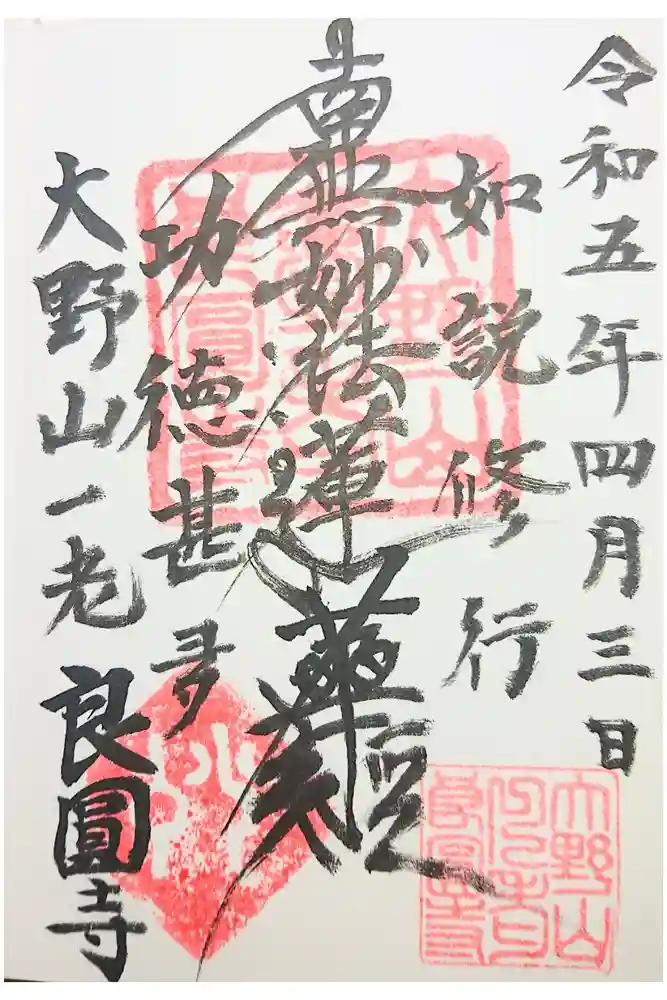 令和五年四月三日
如説修行
南無妙法蓮華経
功徳甚多
大野山一老
良圓寺
大野山
良圓寺